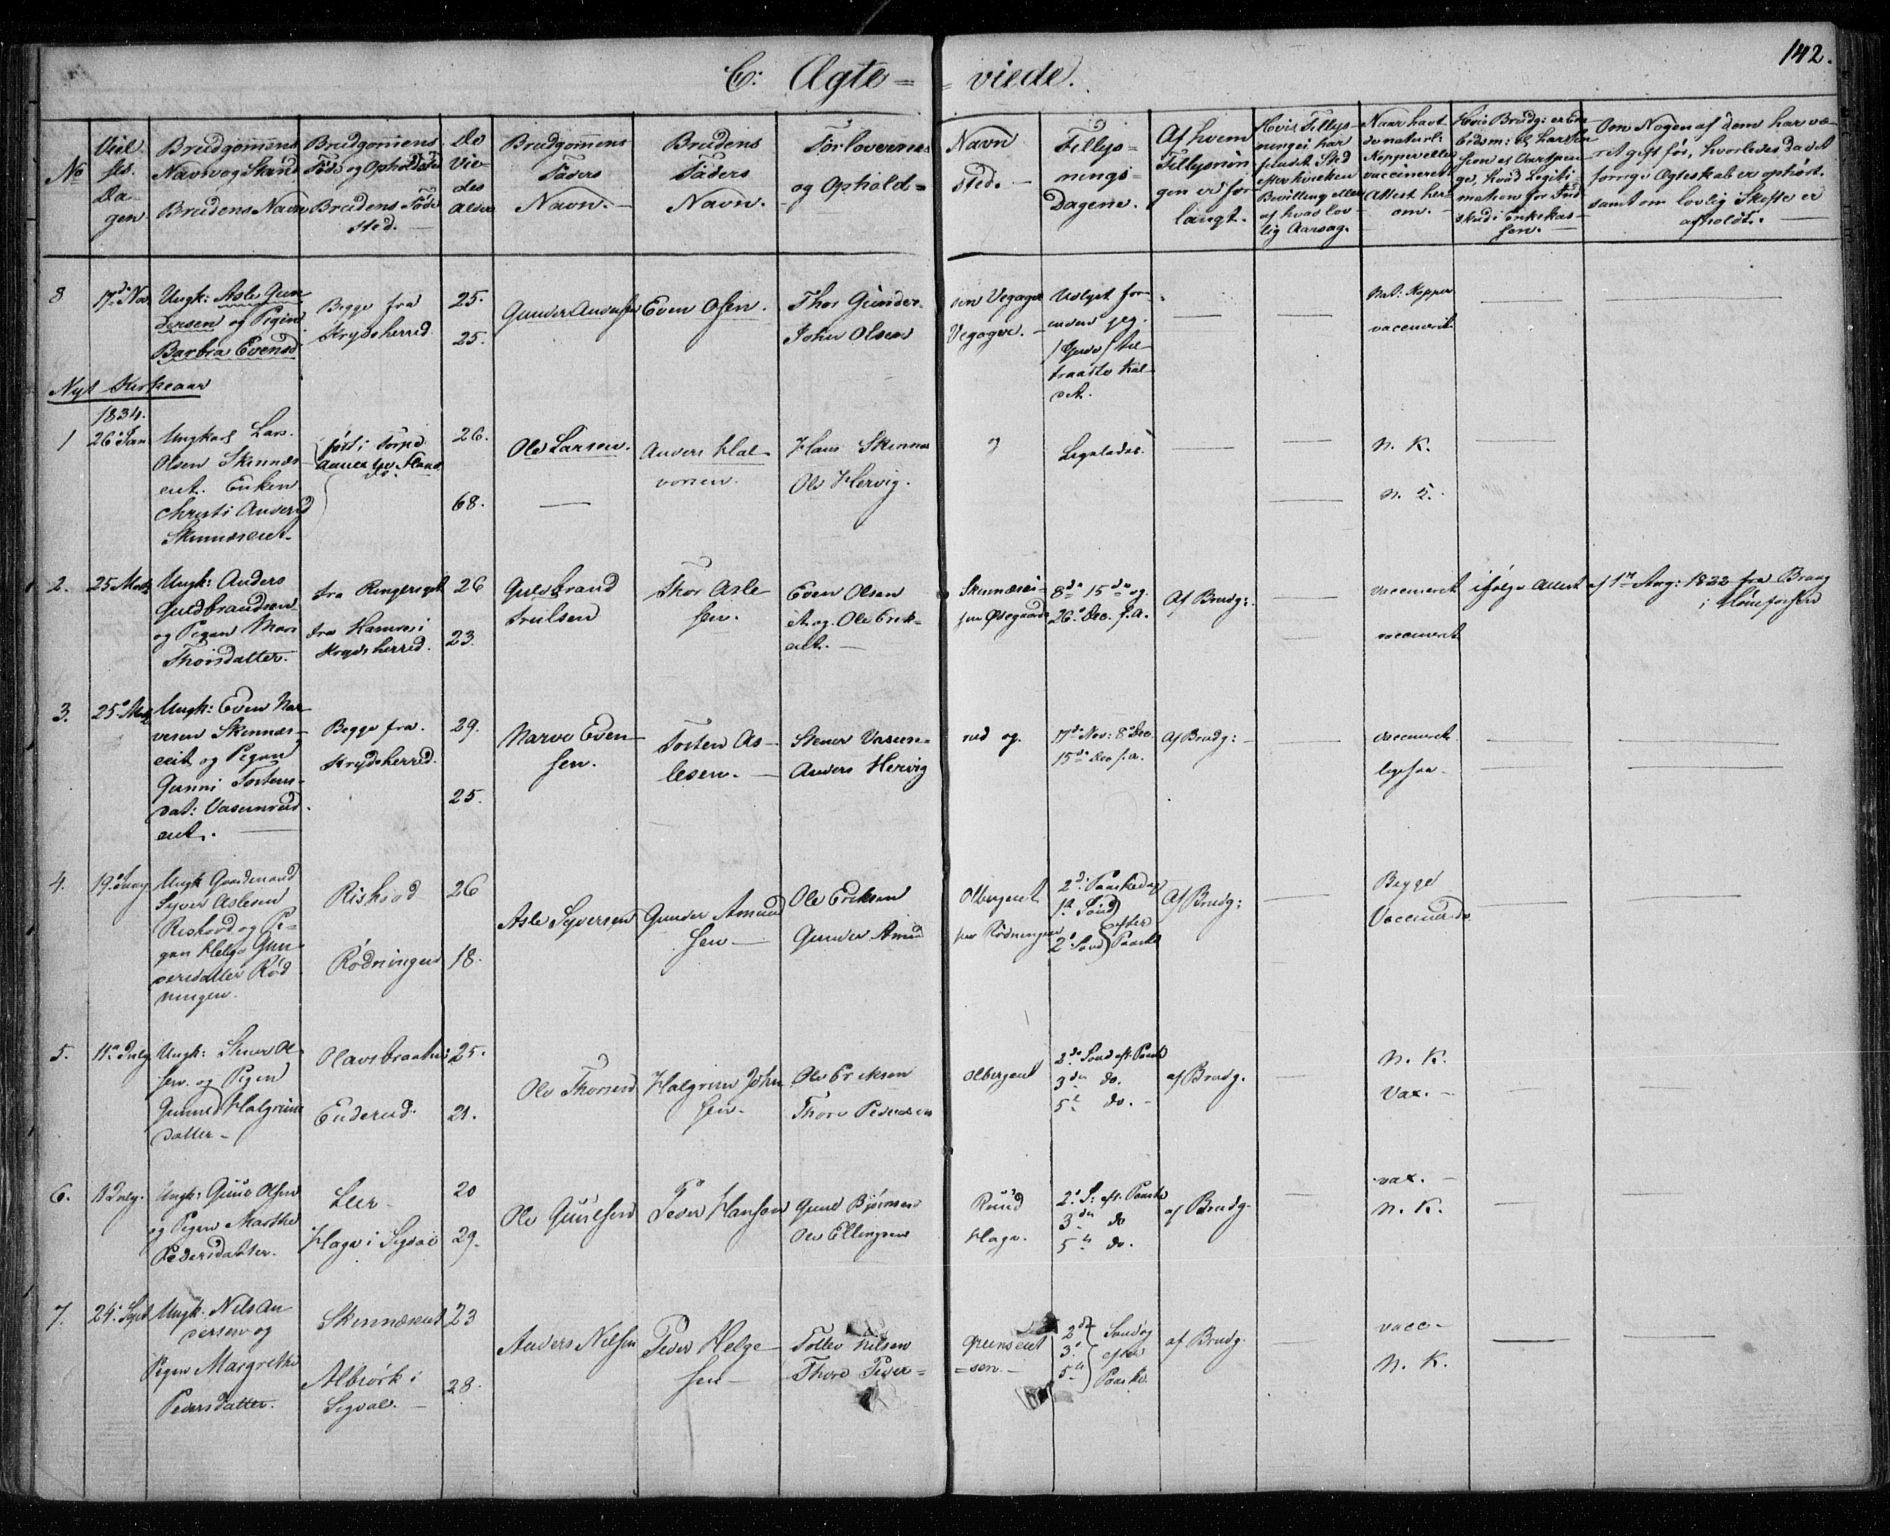 142.
C: Ægte = = viede.
No
Viel
ses
Da-
gen.
Brudgommens
Navn og Stand
Brudens Navn
Brudgommens
Føde og Opholdsted
Brudens Føde
sted. —
De
Vie-
des
Alder
Brudgommens
Faders
Navn. —
Brudens
Faders
Navn. —
Forlovernes
og Ophold =
Navn
sted. —
Tillys-
nings-
Dagene.
Af hvem
Tillysnin
gen er for
langt.
Hvis Tillys-
ningen har
fundet Sted
efter hvilken
Bevilling eller
af hvad lov-
lig Aarsag.
Naar havt
de naturli
Kopper eller
vaccineret
Attest her
om. —
Om Nogen af dem har væ-
ret gift før, hvorledes da det
forrige Ægteskab er ophørt.
samt om lovlig Skifte er
afholdt. —
8
17de Nov.
Ungk: Asle Gun
dersen og Pigen
Barbra Evensd
Begge fra
Krydsherred
25.
25.
Gunder Andersen
Even Olsen.
Thor Gunder-
John Olsen
sen Vegager
Vegager. —
Udlyst for-
inden jeg
traadte Kal-
det.
Nat: Kopper
vaccineret
Nyt Kirkeaar
1834.
1
26de Jan
Ungkarl Lars
Olsen Skinnes-
eiet. Enken
Christi Andersd
Skinneseiet.
født i Torpe
26.
68.
Ole Larsen.
Anders Hal-
vorsen.
Hans Skinnes
Ole Hervig.
Ligeledes.
N. K.
N. K.
2.
25 Marts
Ungk: Anders
Guldbrandsen
og Pigen Mari
Thorsdatter.
fra Ringeriget
fra Hamre i
Krydsherred.
26
23.
Guldbrand
Truelsen
Thor Asle
sen. —
Even Olsen
eit. og Ole Erik-
eiet. —
Skinnesei-
8de 15de og
26de Dec. f. A.
Af Brudg:
vaccineret
vaccineret
ifølge Attest
af 1ste Aug: 1822 fra Brang
i Hönefossen
3.
25de Marts
Ungk: Even Nar
vesen Skinnes-
eiet og Pigen
Gunni Torstens
dat: Vasunrud-
eiet. —
Begge fra
Krydsherred.
29.
25.
Narve Even
sen.
Torsten As-
lesen. —
Stener Vasun-
Anders Hervig
rud og.
17de Nov: 8de Dec.
15de Dec f. A.
Af Brudg: —
vaccineret
ligesaa.
4.
19de Juny
Ungk Gaardmand
Syver Aslesen
Rishovd og Pi-
gen Helge Gun
dersdatter Rød
ningen.
Rishovd
Rødningen
26
18.
Asle Syversen
Gunder Amund
sen —
Ole Eriksen
Gunder Amund
Olbergeiet
sen Rødningen
2de Paaskedag
1ste Sønd
2de Sønd
efter
Paaske
Af Brudg:
Begge
Vaccinerede
5.
11te July
Ungk: Stener Ol-
sen og Pigen
Gunnild Halgrims
datter —
Olavsbraaten
Enderud.
25.
21.
Ole Thorsen
Halgrim John
sen.
Ole Eriksen
Thore Pedersen
Olbergeiet
2de Sønd eft. Paaske
3die do.
5te do. —
af Brudg.
N. K.
Vax. —
6.
11 July.
Ungk: Guul Olsen
og Pigen Marthe
Pedersdatter.
Leer-
Hage i Sigdal
20
29.
Ole Guulsen
Peder Hansen
Guul Bjørnsen
Ole Ellingsen
Ruud
Hage.
2de S: eft. Paaske
3die do
5te do.
af Brudg.
vax. —
N. K.
7.
24de Sept
Ungk. Nils An
dersen og
Pigen Margrethe
Pedersdatter.
Skinneseiet
Albjørk i
Sigdal. —
23
28.
Anders Nilsen
Peder Helge
sen —
Tollev Nilsen
Thore Peder =
Grønseiet
= sen. —
2den
3die
5te
Søndag
efter
Paaske
af Brudg.
vacc. —
N. K.